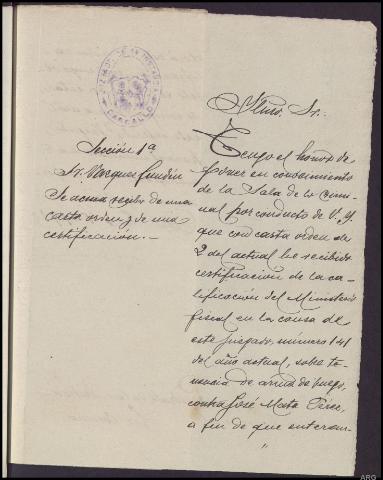 JUZGADO DE INSTRUCCIÓN
CARBALLO
Sección 1ª
Sr. Vazquez Gundín
Se acusa recibo de una
carta orden y de una
certificación.-
Iltmo. Sr.
Tengo el honor de
poner en conocimiento
de la Sala de lo Crimi
nal por conducto de V.Y.
que con carta orden de
2 del actual he recibido
certificación de la ca-
lificación del Ministerio
fiscal en la causa de
este juzgado, número 141
del año actual, sobre te-
nencia de arma de fuego,
contra José Mato Perez,
a fin de que enteran-
ARG